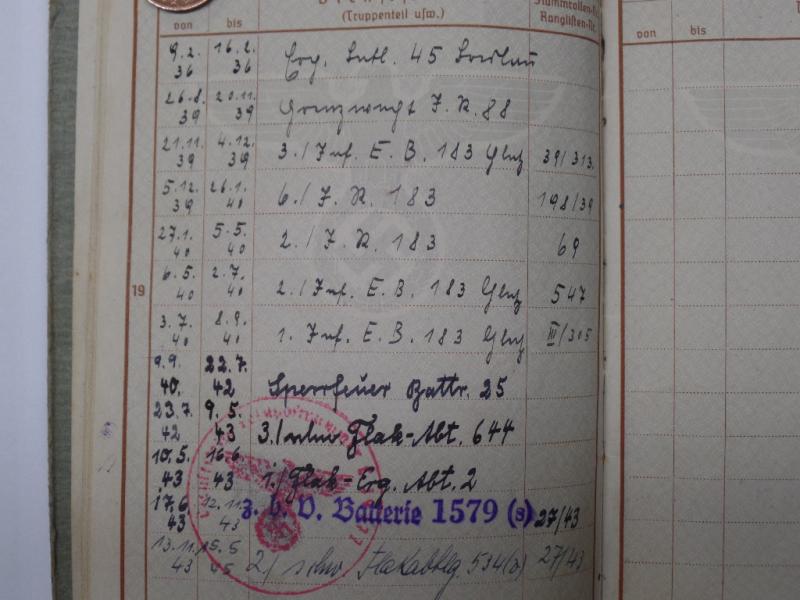 (Truppenteil usw.)
Stammrollen-Nr.
Ranglisten-Nr.
von bis
von bis
9.2. 36 16.2. 36 Erg. Batl. 45
26.8. 39 20.11. 39 Grenzwacht J.R. 88
21.11. 39 4.12. 39 3./Inf. E. B. 183 Glatz 39/313.
5.12. 39 26.1. 40 6./J. R. 183 198/39
27.1. 40 5.5. 40 2./J. R. 183 69
6.5. 40 2.7. 40 2./Inf. E. B. 183 Glatz 547
19
3.7. 40 8.9. 40 1. Inf. E. B. 183 Glatz III/305
9.9. 40. 22.7. 42 Sperrfeuer Battr. 25
23.7. 42 9.5. 43 3./schw. Flak-Abt. 644
10.5. 43 16.6. 43 1./Flak-Erg. Abt. 2
17.6. 43 12.11. 43 z. b. V. Batterie 1579 (s) 27/43
13.11. 43 15.5 45 2/ schw. Flakabtlg. 534(o) 27/43